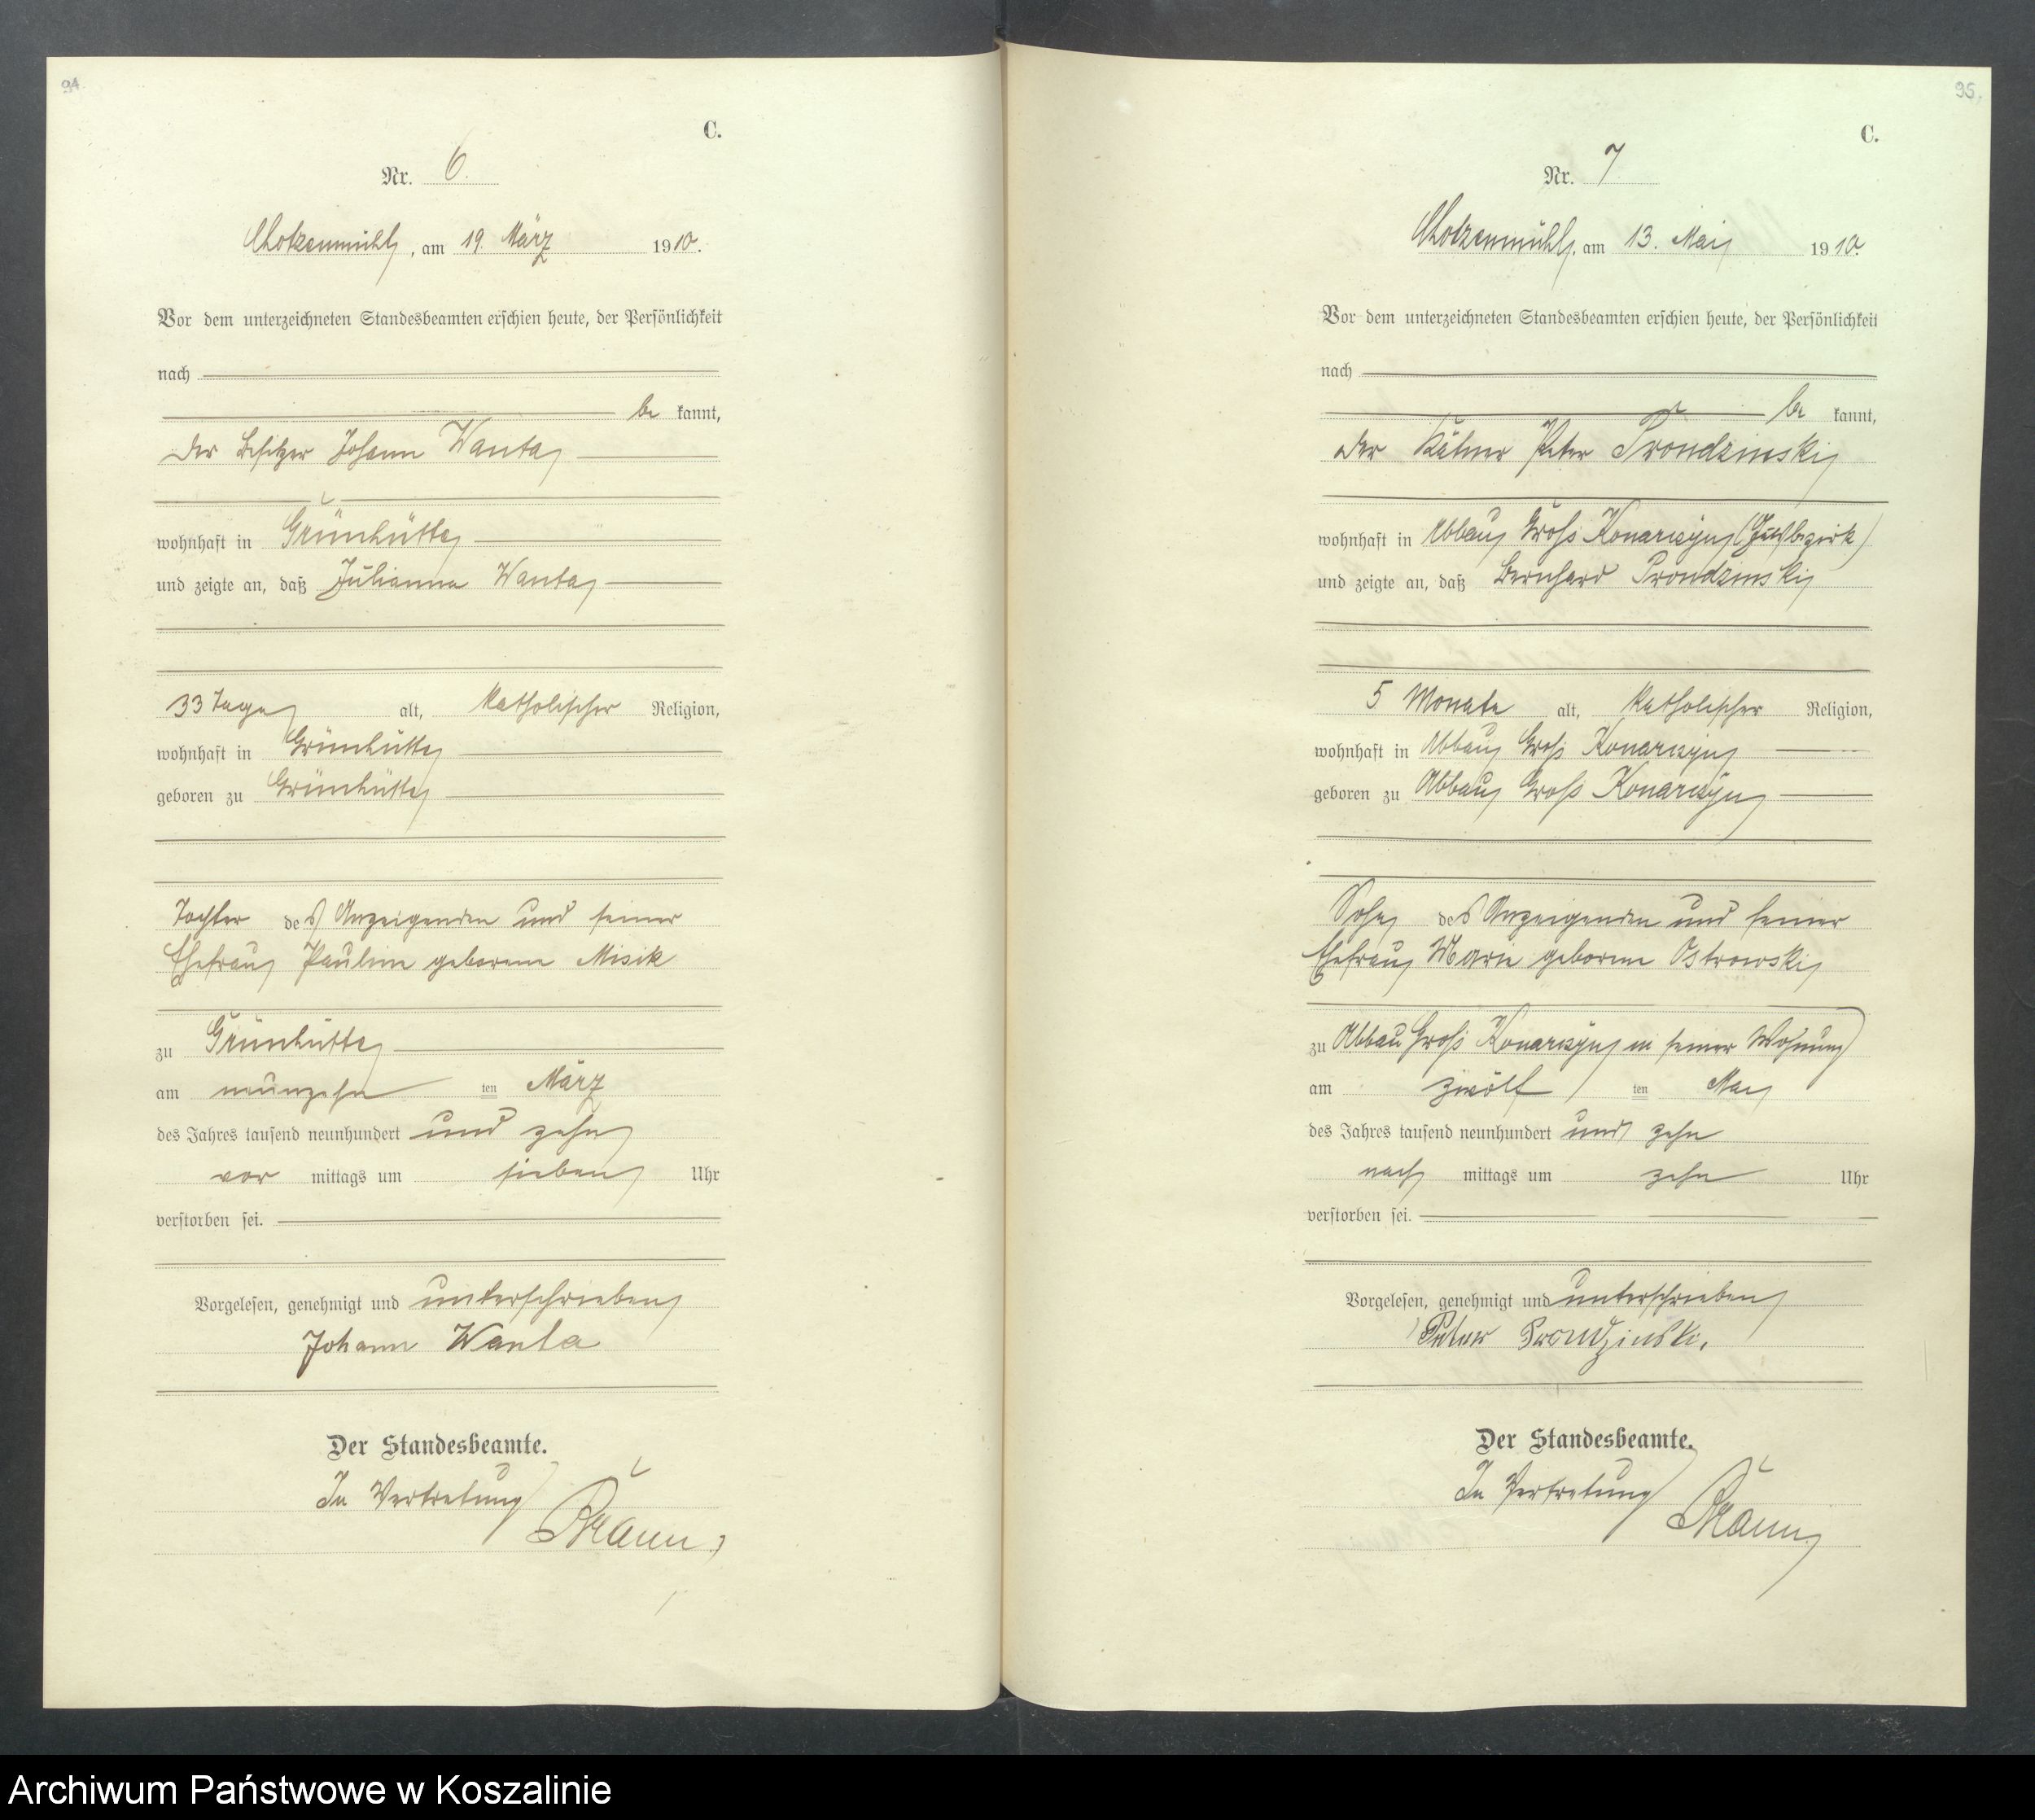 94
C.
Nr. 6.
Chotzenmühl, am 19. März 1910.
Vor dem unterzeichneten Standesbeamten erschien heute, der Persönlichkeit
nach
be kannt,
der Besitzer Johann Wanta
wohnhaft in Grünhütte
und zeigte an, daß Julianna Wanta
33 Tage alt, katholischer Religion,
wohnhaft in Grünhütte
geboren zu Grünhütte
Tochter des Anzeigenden und seiner
Ehefrau Pauline geborene Misik
zu Grünhütte
am neunzehn ten März
des Jahres tausend neunhundert und zehn
vor mittags um sieben Uhr
verstorben sei.
Vorgelesen, genehmigt und unterschrieben
Johann Wanta
Der Standesbeamte.
In Vertretung
95,
C.
Nr. 7
Chotzenmühl, am 13. Mai 1910.
Vor dem unterzeichneten Standesbeamten erschien heute, der Persönlichkeit
nach
be kannt,
der Kätner Peter Prondzinski
wohnhaft in Abbau Groß Konarczyn (Gutsbezirk)
und zeigte an, daß Bernhard Prondzinski
5 Monate alt, katholischer Religion,
wohnhaft in Abbau Groß Konarczyn
geboren zu Abbau Groß Konarczyn
Sohn des Anzeigenden und seiner
Ehefrau Marie geborene Ostrowski
zu Abbau Groß Konarczyn in seiner Wohnung
am zwölf ten Mai
des Jahres tausend neunhundert und zehn
nach mittags um zehn Uhr
verstorben sei.
Vorgelesen, genehmigt und unterschrieben
Peter Prondzinski.
Der Standesbeamte.
In Vertretung
Archiwum Państwowe w Koszalinie